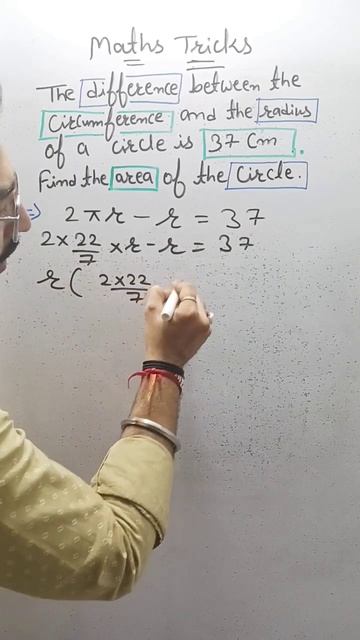 Maths Tricks
The difference between the
Circumference and the radius
of a circle is 37 Cm.
Find the area of the Circle.
⇒ 2πr - r = 37
2 × 22/7 × r - r = 37
r ( 2×22/7